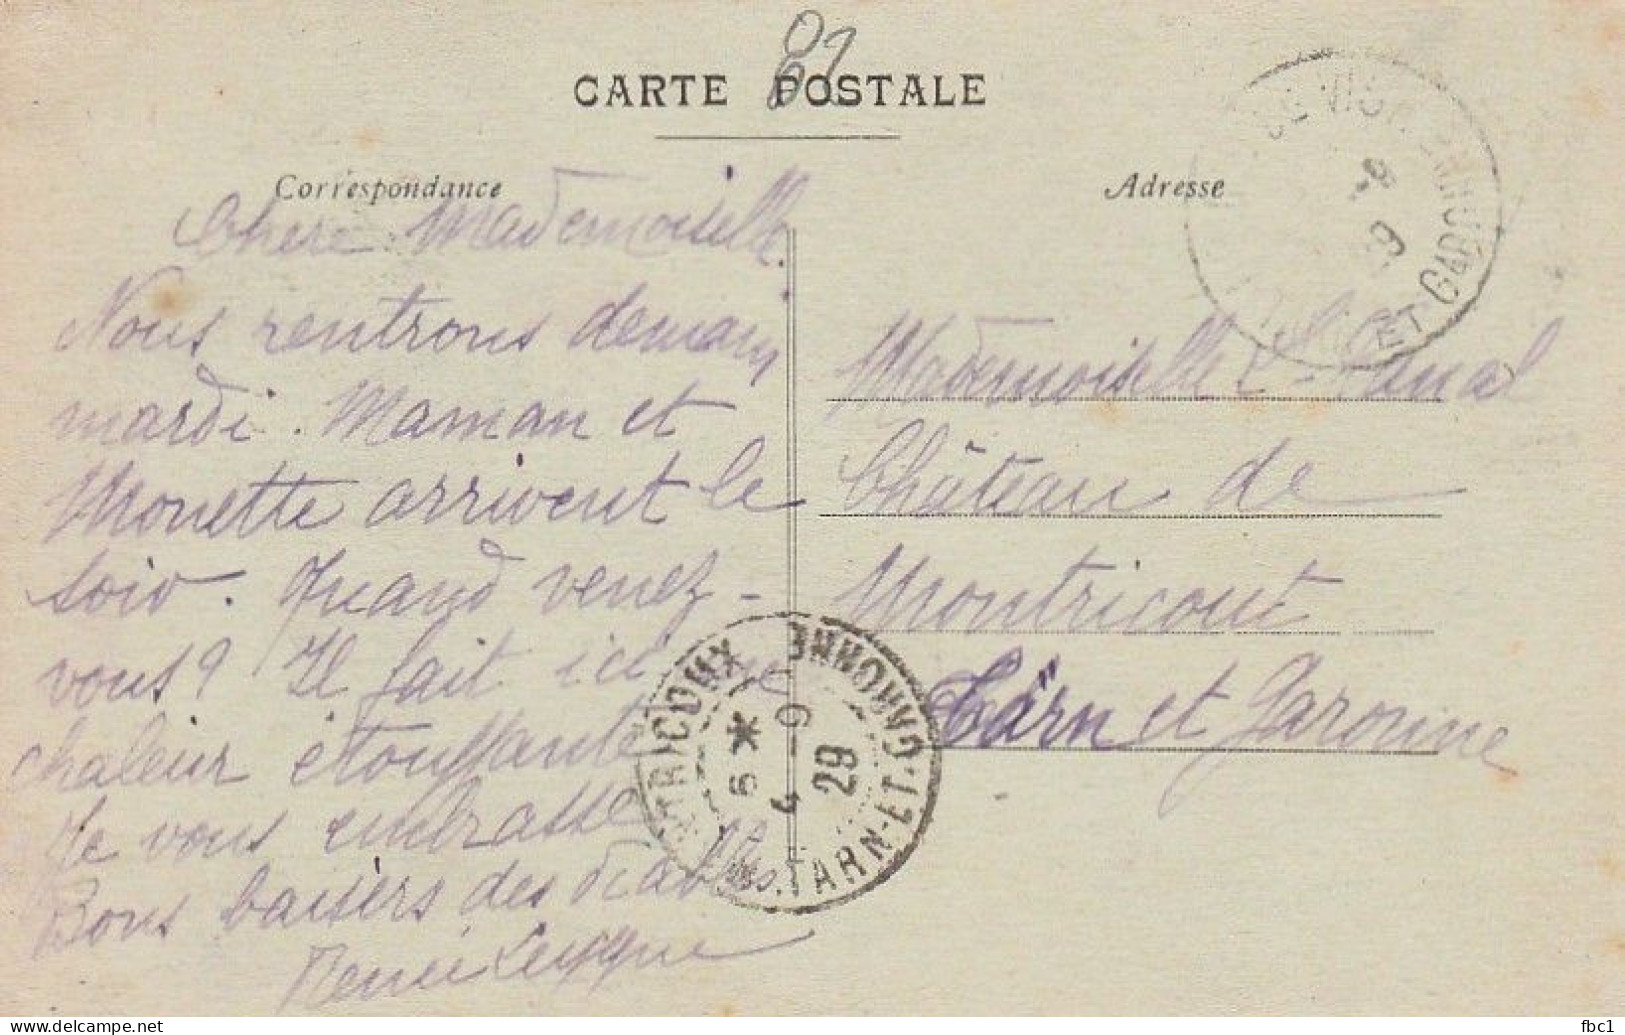 CARTE POSTALE
Correspondance
Adresse
Chere Mademoiselle.
Nous rentrons demain
mardi. Maman et
Monette arrivent le
soir. Quand venez-
vous? Il fait ici une
chaleur étouffante
Je vous embrasse
Bons baisers des diables
Mademoiselle
Château de
Montricout
Tarn et Garonne
ET GARONNE
TRICOUX
TARN-ET-GARONNE
6 * 4 - 9 29
www.delcampe.net
fbc1